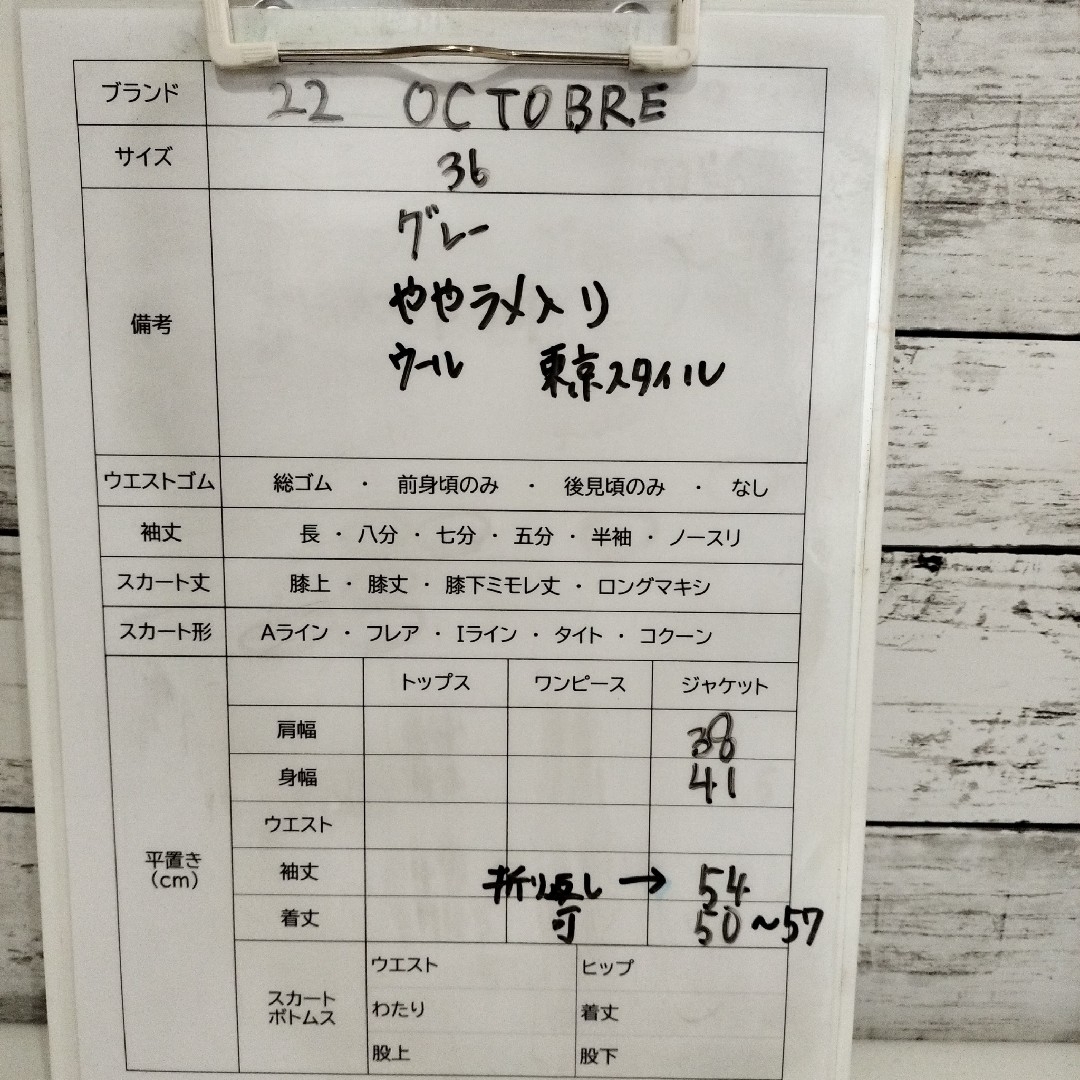 ブランド 22 OCTOBRE
サイズ 36
備考
グレー
ややラメ入り
ウール 東京スタイル
ウエストゴム 総ゴム ・ 前身頃のみ ・ 後見頃のみ ・ なし
袖丈 長 ・ 八分 ・ 七分 ・ 五分 ・ 半袖 ・ ノースリ
スカート丈 膝上 ・ 膝丈 ・ 膝下ミモレ丈 ・ ロングマキシ
スカート形 Aライン ・ フレア ・ Iライン ・ タイト ・ コクーン
平置き
(cm)
トップス ワンピース ジャケット
肩幅 38
身幅 41
ウエスト
袖丈 折り返し → 54
着丈 可 50 ~57
スカート
ボトムス
ウエスト ヒップ
わたり 着丈
股上 股下